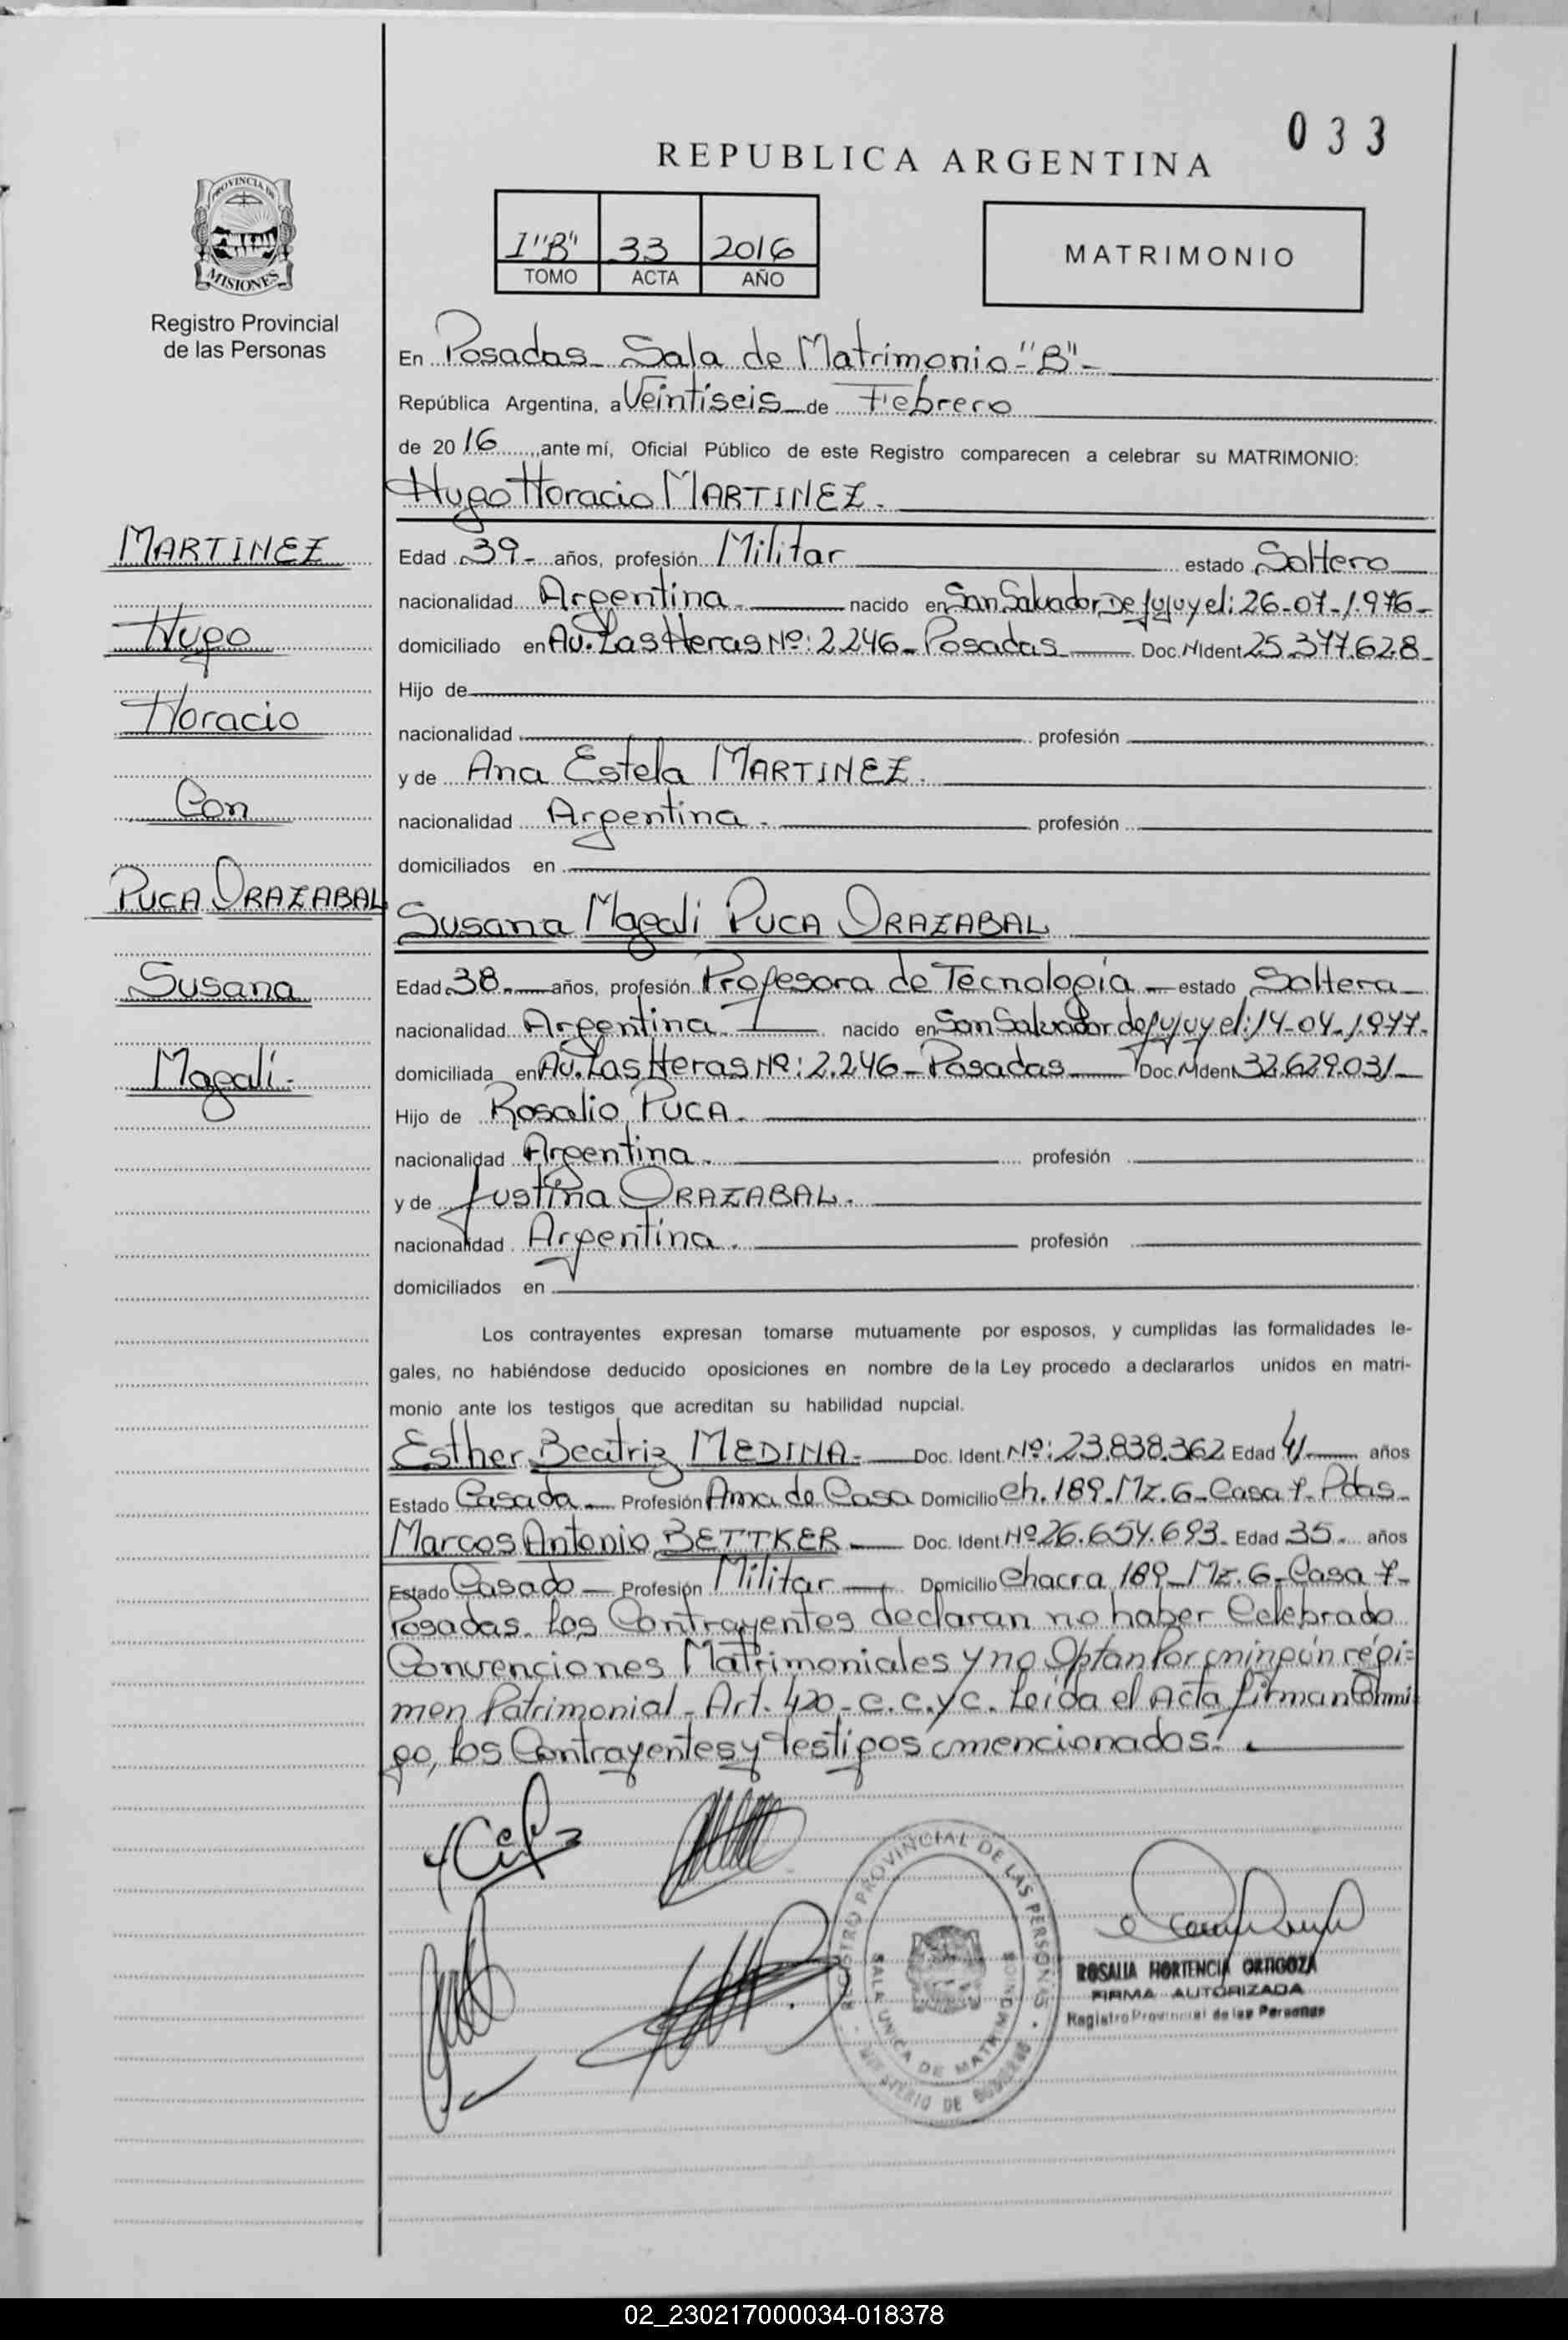 033
REPUBLICA ARGENTINA
PROVINCIA DE
MISIONES
Registro Provincial
de las Personas
1"B" 33 2016
TOMO ACTA AÑO
MATRIMONIO
En Posadas - Sala de Matrimonio "B" -
República Argentina, a Veintiseis de Febrero
de 2016, ante mí, Oficial Público de este Registro comparecen a celebrar su MATRIMONIO:
Hugo Horacio MARTINEZ.
MARTINEZ
Hugo
Horacio
Con
PUCA ORAZABAL
Susana
Magali-
Edad 39- años, profesión Militar estado Soltero
nacionalidad Argentina - nacido en San Salvador De Jujuy el: 26-07-1.976-
domiciliado en Av. Las Heras Nº: 2.246 - Posadas Doc. NIdent 25.377.628-
Hijo de
nacionalidad profesión
y de Ana Estela MARTINEZ.
nacionalidad Argentina - profesión
domiciliados en
Susana Magali PUCA ORAZABAL
Edad 38.- años, profesión Profesora de Tecnología - estado Soltera
nacionalidad Argentina - nacido en San Salvador de Jujuy el: 14-04-1.977.
domiciliada en Av. Las Heras Nº: 2.246 - Posadas Doc. NIdent 32.629.031-
Hijo de Rosalio PUCA.
nacionalidad Argentina. profesión
y de Justina ORAZABAL.
nacionalidad Argentina. profesión
domiciliados en
Los contrayentes expresan tomarse mutuamente por esposos, y cumplidas las formalidades le-
gales, no habiéndose deducido oposiciones en nombre de la Ley procedo a declararlos unidos en matri-
monio ante los testigos que acreditan su habilidad nupcial.
Esther Beatriz MEDINA- Doc. Ident. Nº: 23.838.362 Edad 41 años
Estado Casada - Profesión Ama de Casa Domicilio Ch. 189-Mz. G-Casa 7-Pdas-
Marcos Antonio BETTKER - Doc. Ident. Nº 26.654.693- Edad 35- años
Estado Casado - Profesión Militar Domicilio Chacra 189-Mz. G-Casa 7-
Posadas. Los Contrayentes declaran no haber Celebrado
Convenciones Matrimoniales y no Optan Por ningún régi=
men Patrimonial - Art. 420 - C.C. y C. Leída el Acta firman Conmi
go, los Contrayentes y testigos mencionados.
REGISTRO PROVINCIAL DE LAS PERSONAS
SALA UNICA DE MATRIMONIOS
MINISTERIO DE GOBIERNO
ROSALIA HORTENCIA ORTIGOZA
FIRMA AUTORIZADA
Registro Provincial de las Personas
02_230217000034-018378